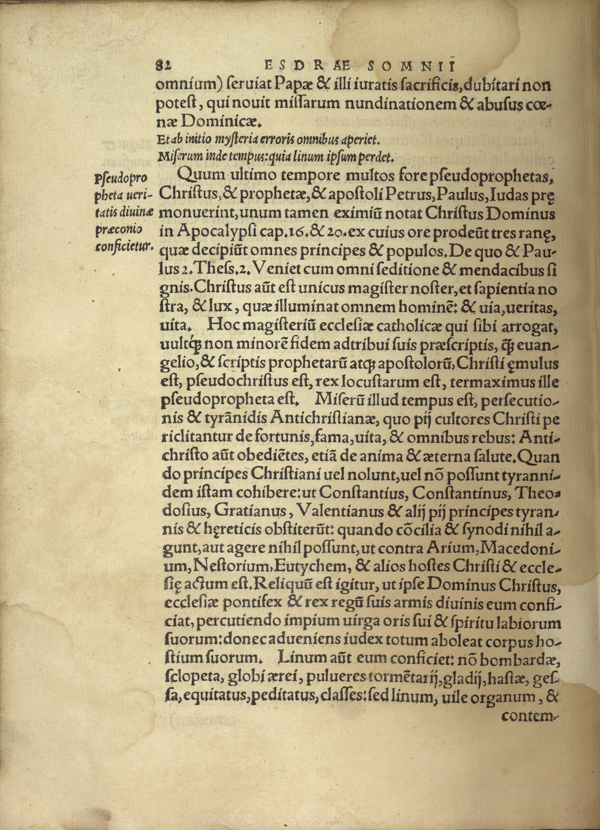 82 ESDRAE SOMNII
omnium) seruiat Papæ & illi iuratis sacrificis, dubitari non
potest, qui nouit missarum nundinationem & abusus cœ-
næ Dominicæ.
Et ab initio mysteria erroris omnibus aperiet.
Miserum inde tempus: quia linum ipsum perdet.
Pseudopro
pheta ueri-
tatis diuinæ
præconio
conficietur.
Quum ultimo tempore multos fore pseudoprophetas,
Christus, & prophetæ, & apostoli Petrus, Paulus, Iudas prę
monuerint, unum tamen eximiũ notat Christus Dominus
in Apocalypsi cap. 16. & 20. ex cuius ore prodeũt tres ranę,
quæ decipiũt omnes principes & populos. De quo & Pau-
lus 2. Thess. 2. Veniet cum omni seditione & mendacibus si
gnis. Christus aũt est unicus magister noster, et sapientia no
stra, & lux, quæ illuminat omnem hominẽ: & uia, ueritas,
uita. Hoc magisteriũ ecclesiæ catholicæ qui sibi arrogat,
uultq́ȝ non minorẽ fidem adtribui suis præscriptis, q̃ȝ euan-
gelio, & scriptis prophetarũ atqȝ apostolorũ, Christi ęmulus
est, pseudochristus est, rex locustarum est, termaximus ille
pseudopropheta est. Miserũ illud tempus est, persecutio-
nis & tyrãnidis Antichristianæ, quo pij cultores Christi pe
riclitantur de fortunis, fama, uita, & omnibus rebus: Anti-
christo aũt obediẽtes, etiã de anima & æterna salute. Quan
do principes Christiani uel nolunt, uel nõ possunt tyranni-
dem istam cohibere: ut Constantius, Constantinus, Theo-
dosius, Gratianus, Valentianus & alij pij principes tyran-
nis & hęreticis obstiterũt: quando cõcilia & synodi nihil a-
gunt, aut agere nihil possunt, ut contra Arium, Macedoni-
um, Nestorium, Eutychem, & alios hostes Christi & eccle-
się actum est. Reliquũ est igitur, ut ipse Dominus Christus,
ecclesiæ pontifex & rex regũ suis armis diuinis eum confi-
ciat, percutiendo impium uirga oris sui & spiritu labiorum
suorum: donec adueniens iudex totum aboleat corpus ho-
stium suorum. Linum aũt eum conficiet: nõ bombardæ,
sclopeta, globi ærei, pulueres tormẽtarij, gladij, hastæ, ges-
sa, equitatus, peditatus, classes: sed linum, uile organum, &
contem-